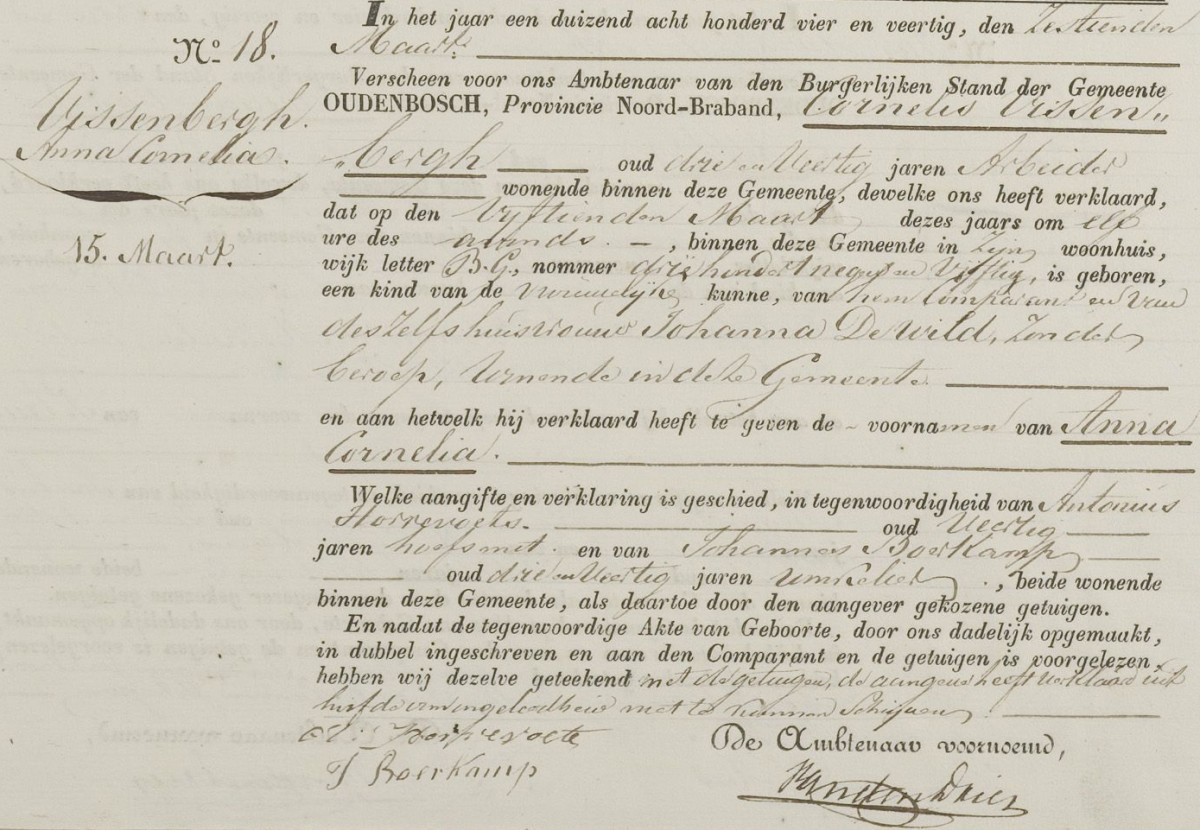 In het jaar een duizend acht honderd vier en veertig, den Zestienden
No. 18.
Maart.
Verscheen voor ons Ambtenaar van den Burgerlijken Stand der Gemeente
OUDENBOSCH, Provincie Noord-Braband, Cornelis Vissen„
Vissenbergh.
Anna Cornelia.
„bergh oud drie en Veertig jaren Arbeider
wonende binnen deze Gemeente, dewelke ons heeft verklaard,
dat op den Vijftienden Maart dezes jaars om elf
15. Maart.
ure des avonds. –, binnen deze Gemeente in Zijn woonhuis,
wijk letter B.G., nommer driehondert negen en Vijftig, is geboren,
een kind van de vrouwelijke kunne, van hem Comparant en van
deszelfs huisvrouw Johanna De Wild, Zonder
beroep, wonende in deze Gemeente.
en aan hetwelk hij verklaard heeft te geven de – voornamen van Anna
Cornelia.
Welke aangifte en verklaring is geschied, in tegenwoordigheid van Antonius
Horrevoets. oud Veertig
jaren hoefsmit. en van Johannes Boerkamp
oud drie en Veertig jaren Winkelier ., beide wonende
binnen deze Gemeente, als daartoe door den aangever gekozene getuigen.
En nadat de tegenwoordige Akte van Geboorte, door ons dadelijk opgemaakt,
in dubbel ingeschreven en aan den Comparant en de getuigen is voorgelezen.
hebben wij dezelve geteekend met de getuigen, de aangever heeft verklaard uit
hoofde van ongeleerdheid niet te kunnen Schrijven.
A Horrevoets
De Ambtenaar voornoemd,
J Boerkamp